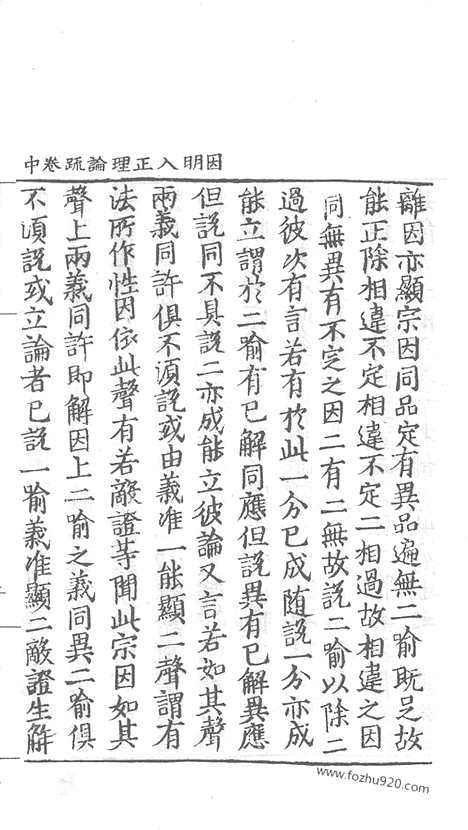 因明入正理論疏卷中
離因亦顯宗因同品定有異品遍無二喻既足故
能正除相違不定相違不定二相過故相違之因
同無異有不定之因二有二無故說二喻以除二
過彼次有言若有於此一分已成随說一分亦成
能立謂於二喻有已解同應但說異有已解異應
但說同不具說二亦成能立彼論又言若如其聲
兩義同許俱不須說或由義准一能顯二聲謂有
法所作性因依此聲有若敵證等聞此宗因如其
聲上兩義同許即解因上二喻之義同異二喻俱
不須說或立論者已說一喻義准顯二敵證生解
www.fozhu920.com